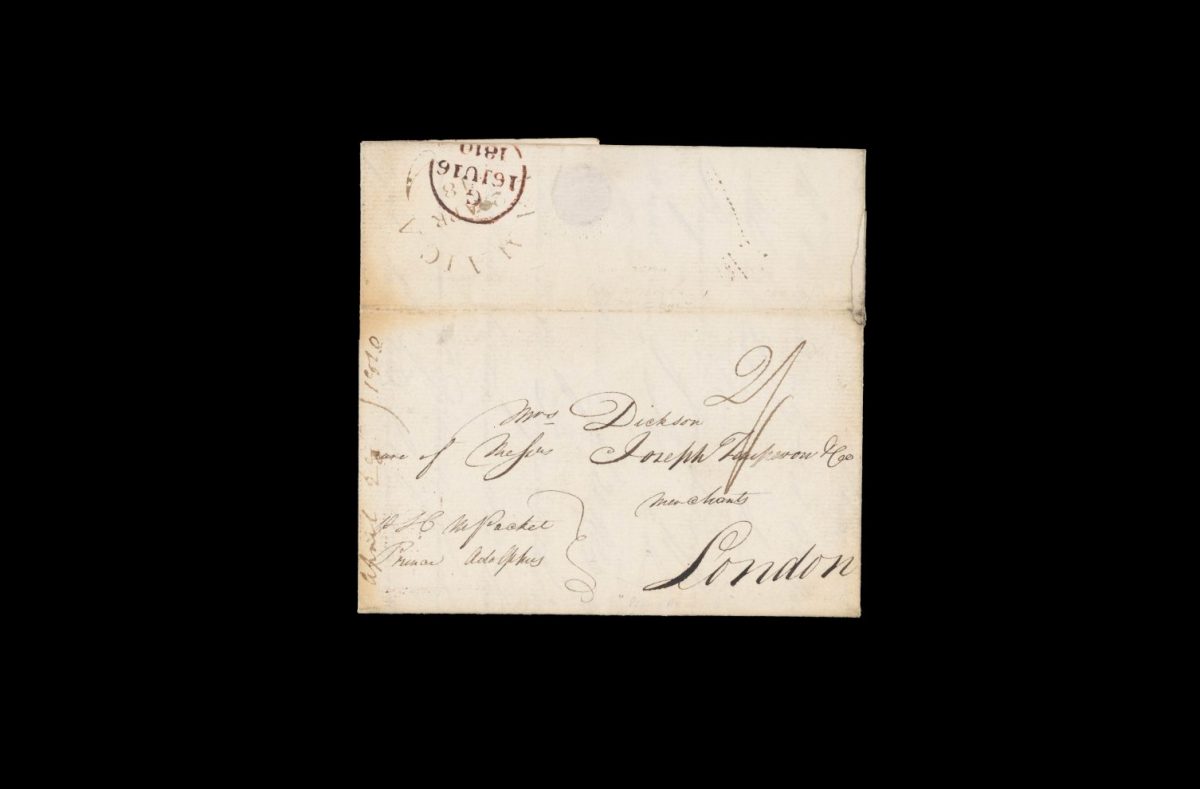 1810
16JU16
G
JAMAICA
APR 28
April 28 1810
2/
Mrs Dickson
care of Messrs Joseph Timperon & Co
Merchants
London
P H M Packet
Prince Adolphus